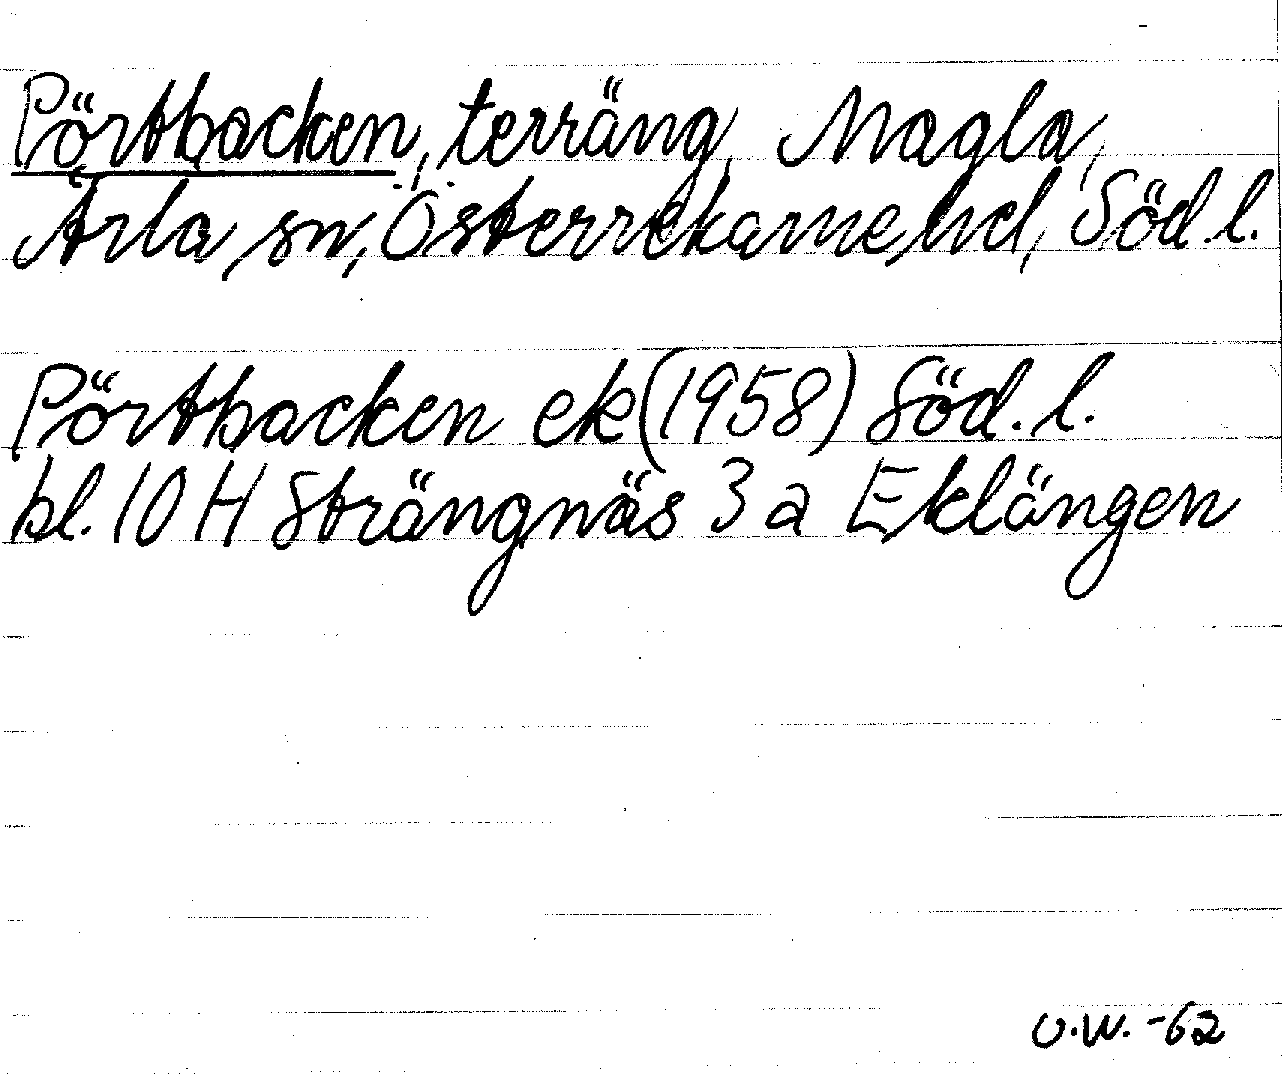 Pörtbacken, terräng, Magla,
Ärla sn, Österrekarne hd, Söd.l.
Pörtbacken ek (1958) Söd. l.
bl. 10 H Strängnäs 3 a Eklängen
U.W. -62